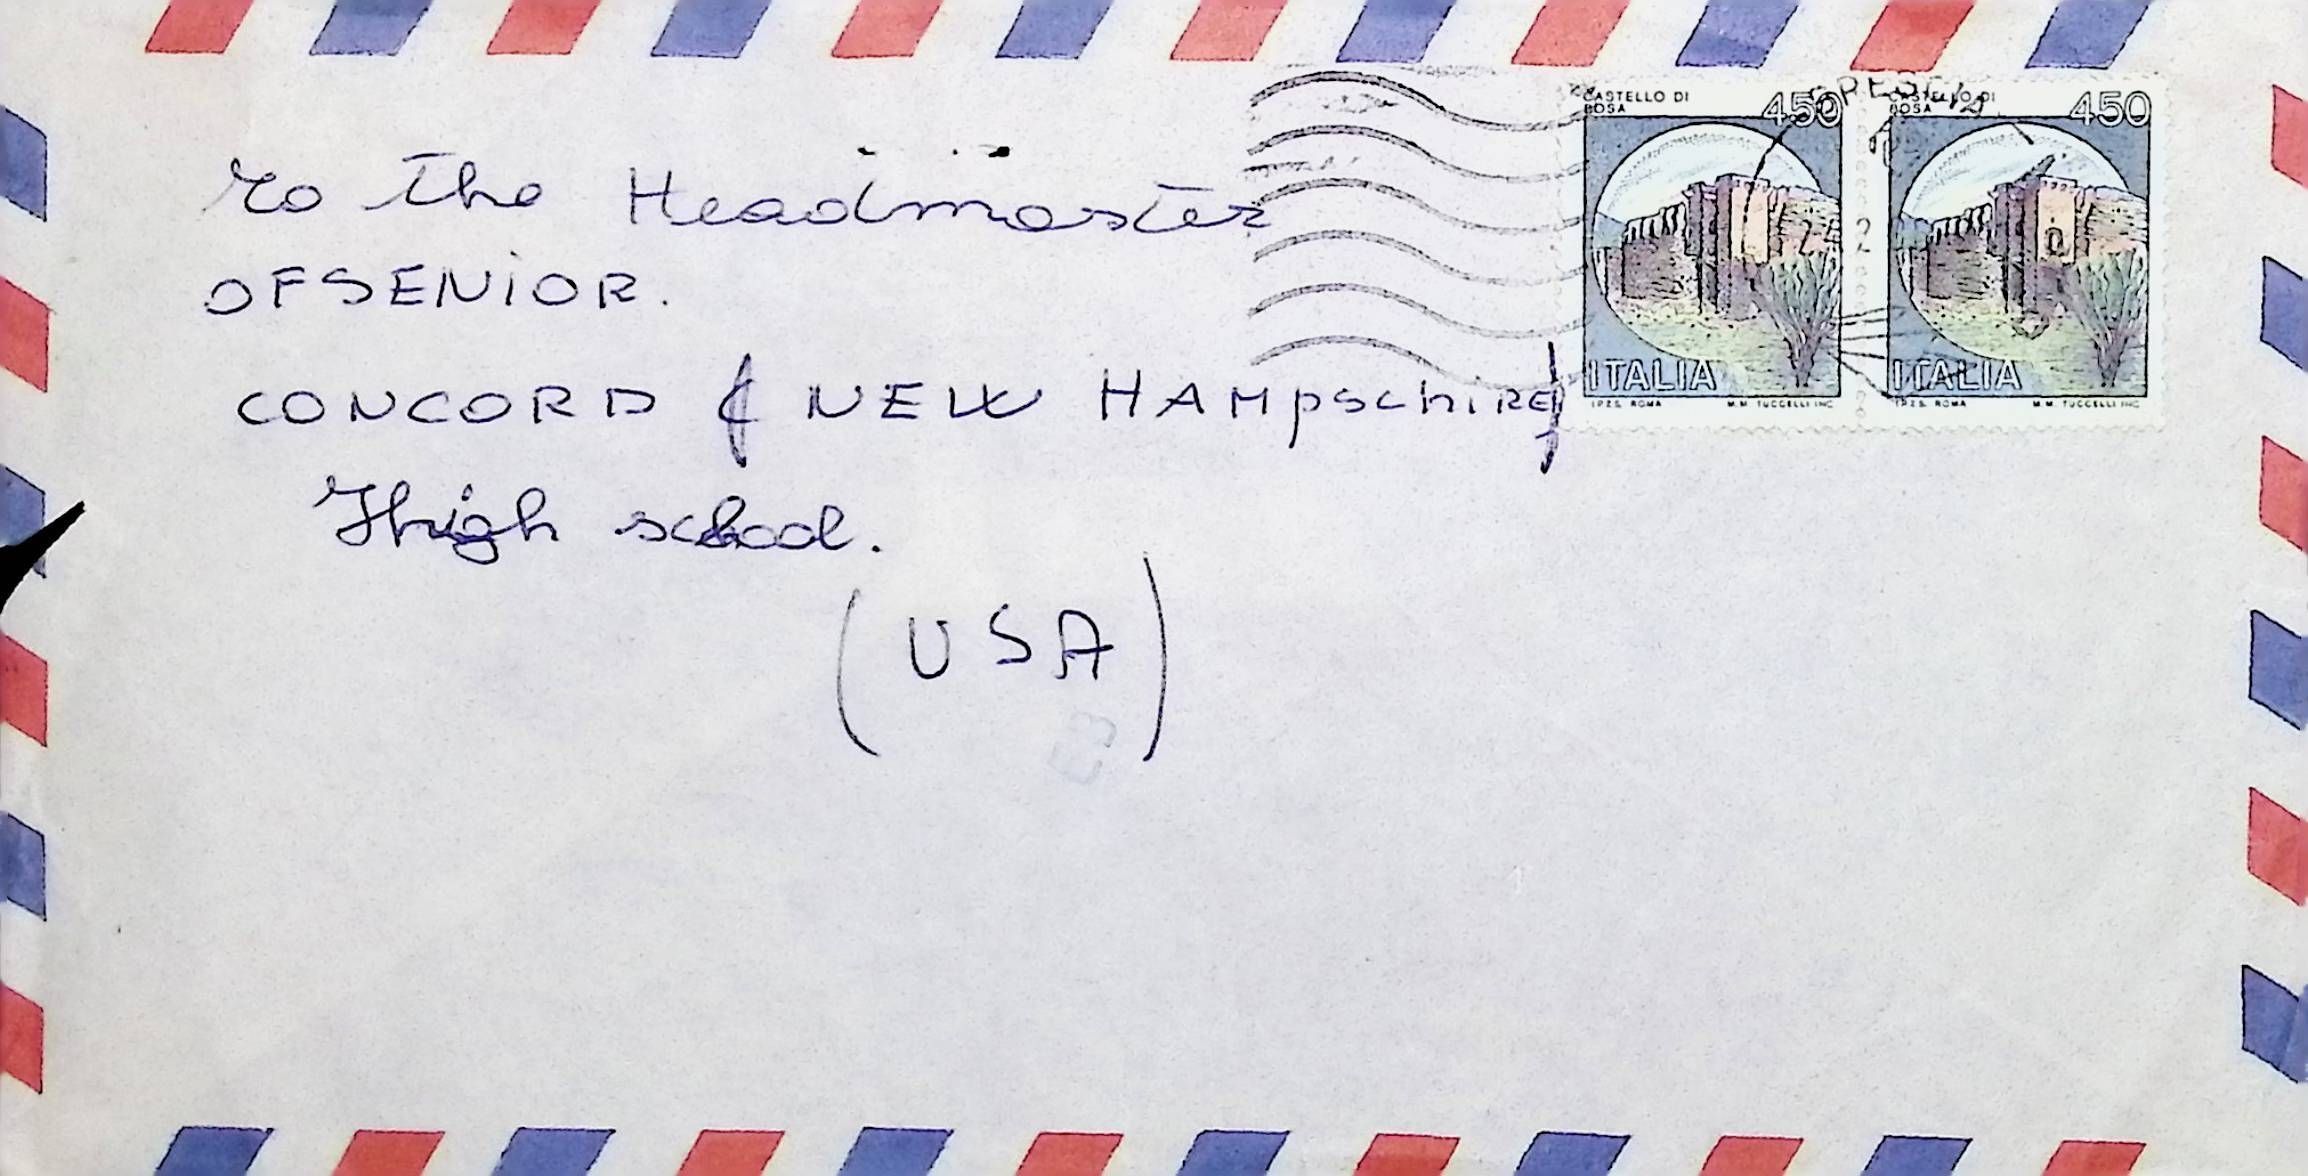 To the Headmaster
OF SENIOR.
CONCORD ( NEW HAMPSCHIRE)
Thigh school.
(USA)
CASTELLO DI
BOSA
450
ITALIA
I.P.Z.S. ROMA M.M. TUCCELLI INC.
CASTELLO DI
BOSA
450
ITALIA
I.P.Z.S. ROMA M.M. TUCCELLI INC.